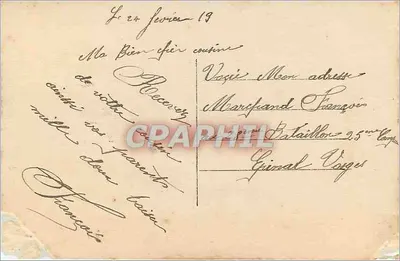 Le 24 fevrier 19
Ma Bien chér cousine
Recevez
de votre cousin
ainssi vos parents
mille doux baiser
François
Voçie Mon adresse
Marchand François
Bataillon 25 eme
Girnat Vosges
CARTAPHIL